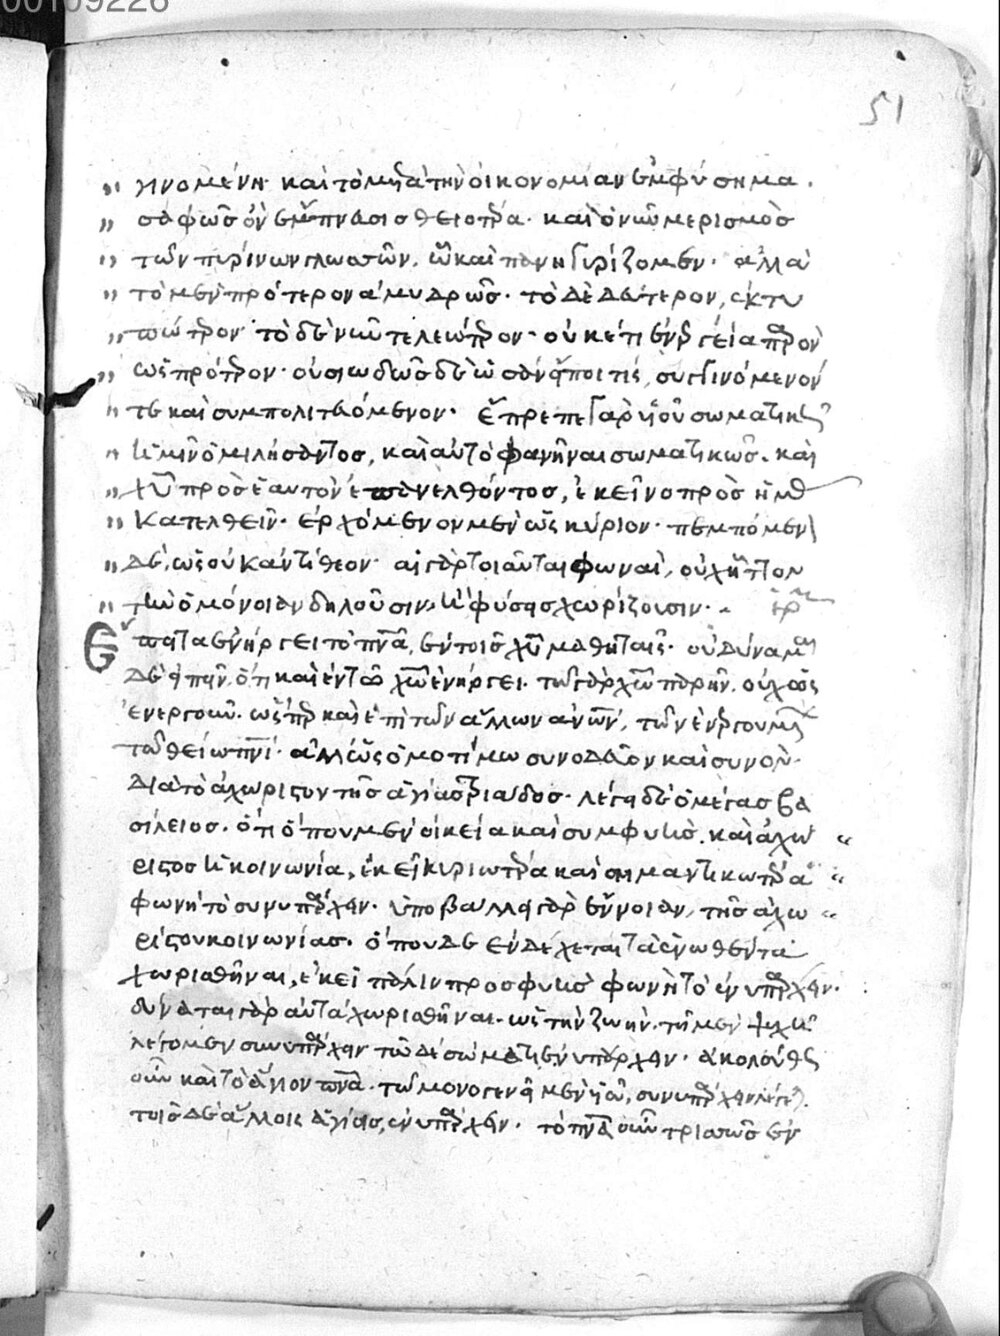 00109226
51
γινομένη· καὶ τὸ μετὰ τὴν οἰκονομίαν ἐμφύσημα.
σαφῶς ὂν ἔμπνευσις θειοτέρα· καὶ ὁ νῦν μερισμὸς
τῶν πυρίνων γλωσσῶν, ὃν καὶ πανηγυρίζομεν· ἀλλὰ
τὸ μὲν πρότερον ἀμυδρῶς· τὸ δὲ δεύτερον, ἐκτυ
πώτερον· τὸ δὲ νῦν τελεώτερον· οὐκέτι ἐνεργείᾳ παρὸν
ὡς πρότερον· οὐσιωδῶς δὲ ὡς ἂν εἴποι τις, συγγινόμενόν
τε καὶ συμπολιτευόμενον· ἔπρεπε γὰρ υἱοῦ σωματικῶς
ἡμῖν ὁμιλήσαντος, καὶ αὐτὸ φανῆναι σωματικῶς. καὶ
χυ πρὸς ἑαυτὸν ἐπανελθόντος, ἐκεῖνο πρὸς ἡμᾶς
κατελθεῖν· ἐρχόμενον μὲν ὡς κύριον· πεμπόμενον
δὲ, ὡς οὐκ ἀντίθεον· αἱ γὰρ τοιαῦται φωναὶ, οὐχ ἧττον
τὴν ὁμόνοιαν δηλοῦσιν, ἢ φύσεις χωρίζουσιν·
ἐνήργει τὸ πνα, ἐν τοῖς χυ μαθηταῖς· οὐ δυνάμεθα
δὲ εἰπεῖν, ὅτι καὶ ἐν τῷ χω ἐνήργει· τῷ γὰρ χω παρῆν, οὐχ ὡς
ἐνεργοῦν· ὥσπερ καὶ ἐπὶ τῶν ἄλλων ανων, τῶν ἐνεργουμένων
τῷ θείῳ πνι· ἀλλ' ὡς ὁμοτίμω συνοδεῦον καὶ συνὸν·
διὰ τὸ ἀχώριστον τῆς ἁγίας τριάδος· λέγει δὲ ὁ μέγας βα
σίλειος. ὅτι ὅπου μὲν οἰκεία καὶ συμφυὴς, καὶ ἀχώ
ριστος ἡ κοινωνία, ἐκεῖ κυριωτέρα καὶ σημαντικωτέρα
φωνὴ τὸ συνυπάρχειν· ὑποβάλλει γὰρ ἔννοιαν, τῆς ἀχω
ρίστου κοινωνίας· ὅπου δὲ ἐνδέχεται τὰ ἑνωθέντα
χωρισθῆναι, ἐκεῖ πάλιν προσφυὴς φωνὴ τὸ ἐνυπάρχειν·
δύναται γὰρ αὐτὰ χωρισθῆναι. ὡς τὴν ζωὴν. τῇ μὲν ψυχῇ
λέγομεν συνυπάρχειν τῷ δὲ σώματι ἐνυπάρχειν· ἀκολούθως
οὖν καὶ τὸ ἅγιον πνα· τῷ μονογενεῖ μὲν υἱῷ, συνυπάρχειν λέγεται.
τοῖς δὲ ἄλλοις ἁγίοις, ἐνυπάρχειν· τὸ πνα οὖν τρισσῶς ἐν